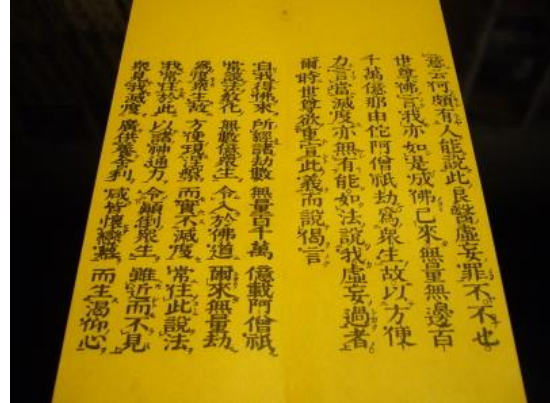 意云何頗有人能說此良醫虛妄罪不不也
世尊佛言我亦如是成佛已來無量無邊百
千萬億那由佗阿僧祇劫爲衆生故以方便
力言當滅度亦無有能如法說我虛妄過者
爾時世尊欲重宣此義而說偈言
自我得佛來 所經諸劫數 無量百千萬 億載阿僧祇
常說法教化 無數億衆生 令入於佛道 爾來無量劫
爲度衆生故 方便現涅槃 而實不滅度 常住此說法
我常住於此 以諸神通力 令顚倒衆生 雖近而不見
衆見我滅度 廣供養舍利 咸皆懷戀慕 而生渴仰心